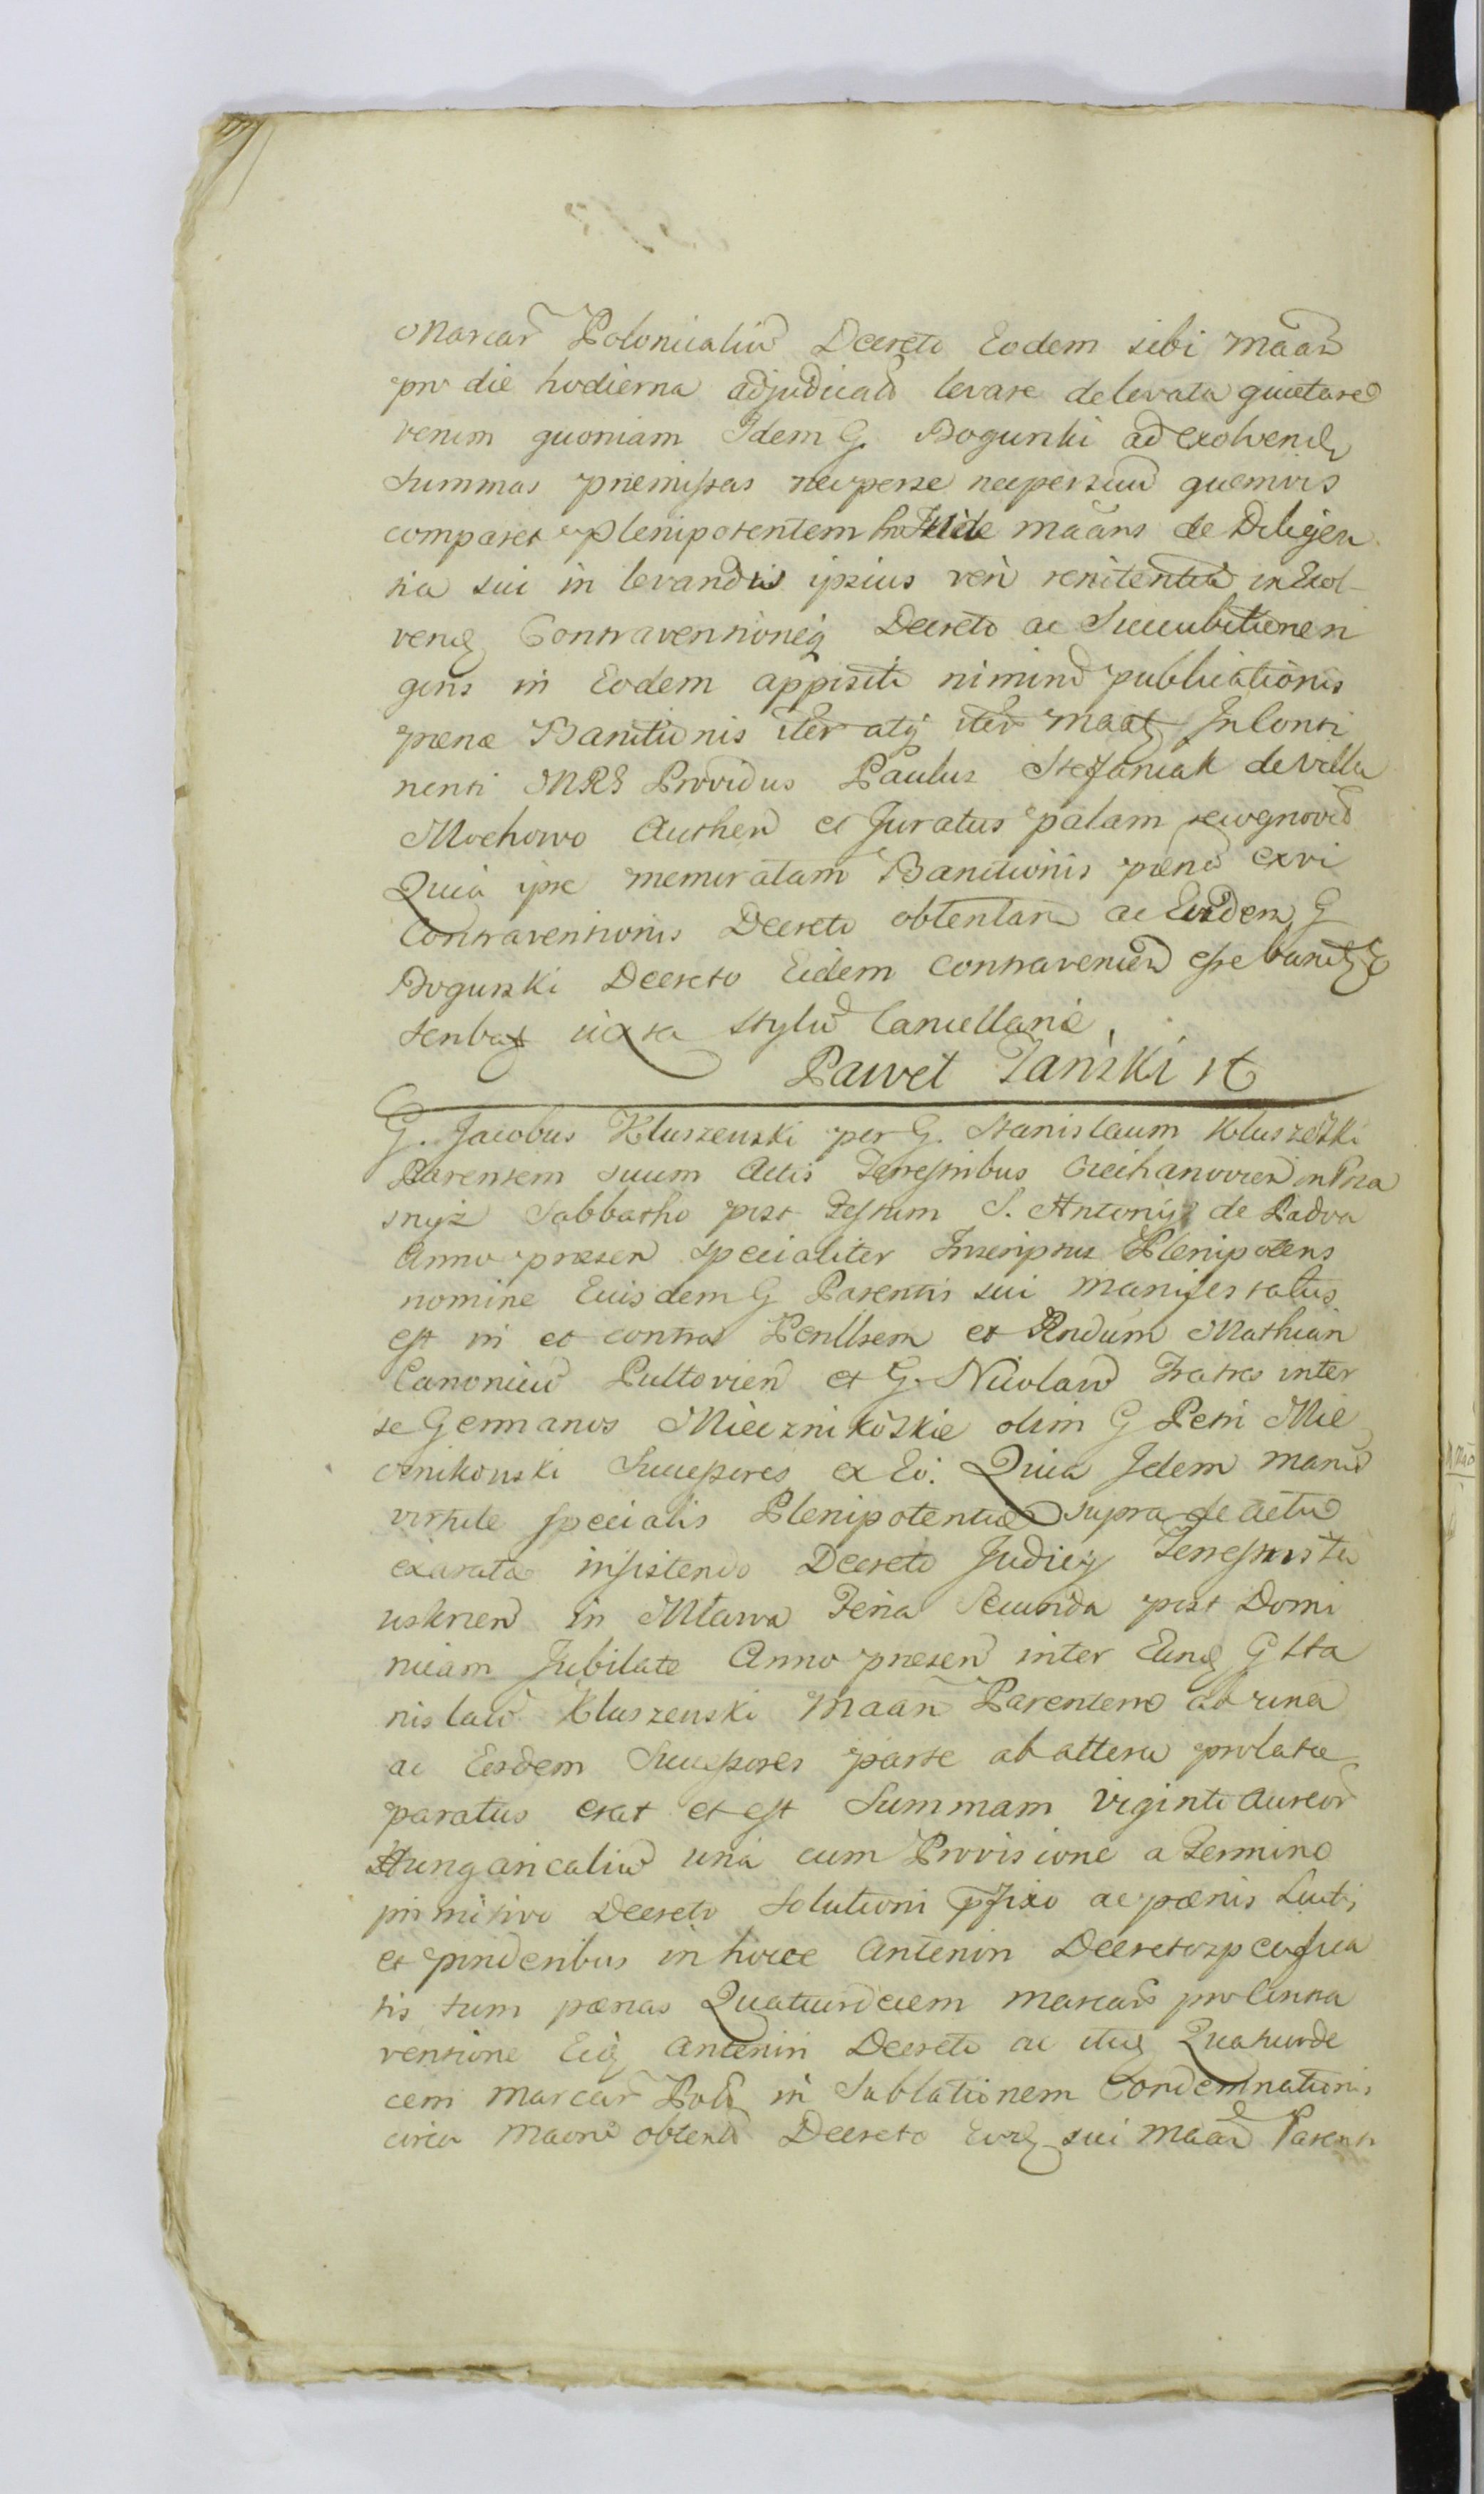 Marcar Polonicaliu Decreto Eodem sibi maan
pro die hodierna adjudicat levare de levata quietare
verum quoniam Idem G. Bogurski ad Exolvend
Summas præmissas nec per se nec per suu quemvis
comparet Plenipotentem maans de Diligen
tia sui in levandis ipsius vero renitentia in Exol-
vend Contraventioneq Decreto ac Succubitionen
gens in Eodem appositi nimino publicationis
pænæ Banitionis iter maat In Conti
nenti MRS Providus Paulus Stefaniak de Villa
Mochowo Authen et Juratus palam recognovit
Quia ipse memoratam Banitionis pæna ex vi
Contraventionis Decreto obtentam ac Eundem G
Bogurski Decreto Eidem contravenien esse banit
juxta stylu Cancellariæ,
Paweł Tański
G. Jacobus Kluszenski per G. Stanislaum Kluszeski
Parentem suum Actis Terrestribus Ciechanovien in Pra
snyż Sabbatho post Festum S. Antonij de Padva
Anno præsen specialiter Inscriptus Plenipotens
nomine Ejusdem G Parentis sui manifestatus
est in et contra Penllrem et Rndum Mathian
Canonicu Pultovien et G. Nicolaw Fratres inter
se Germanos Miecznikoskie olim G Petri Mie
cznikowski Successores ex Eo. Quia Idem man
virtute specialis Plenipotentiæ supra de actu
exarata insistendo Decreto Judicij Terrestris
uskrien in Mława Feria Secunda post Domi
nicam Jubilate Anno præsen inter Eund G Sta
nislaw Kluszenski Maan Parentem ab una
ac Eosdem Successores parte ab altera prolata
paratus erat et est Summam Viginti Aureor
Hungaricaliu una cum Provisione a Termino
primitivo Decreto Solutioni pfixo ac pænis Luiti
et ponderibus in hocce Anteriori Decreto
tis tum pænas Quatuordecem marcar pro Contra
ventione Eiq Anteriori Decreto ac itid Quatuorde
cem Marcar Pol in Sublationem Condemnationis
circa Maoni obtent Decreto sui Maan Parenti